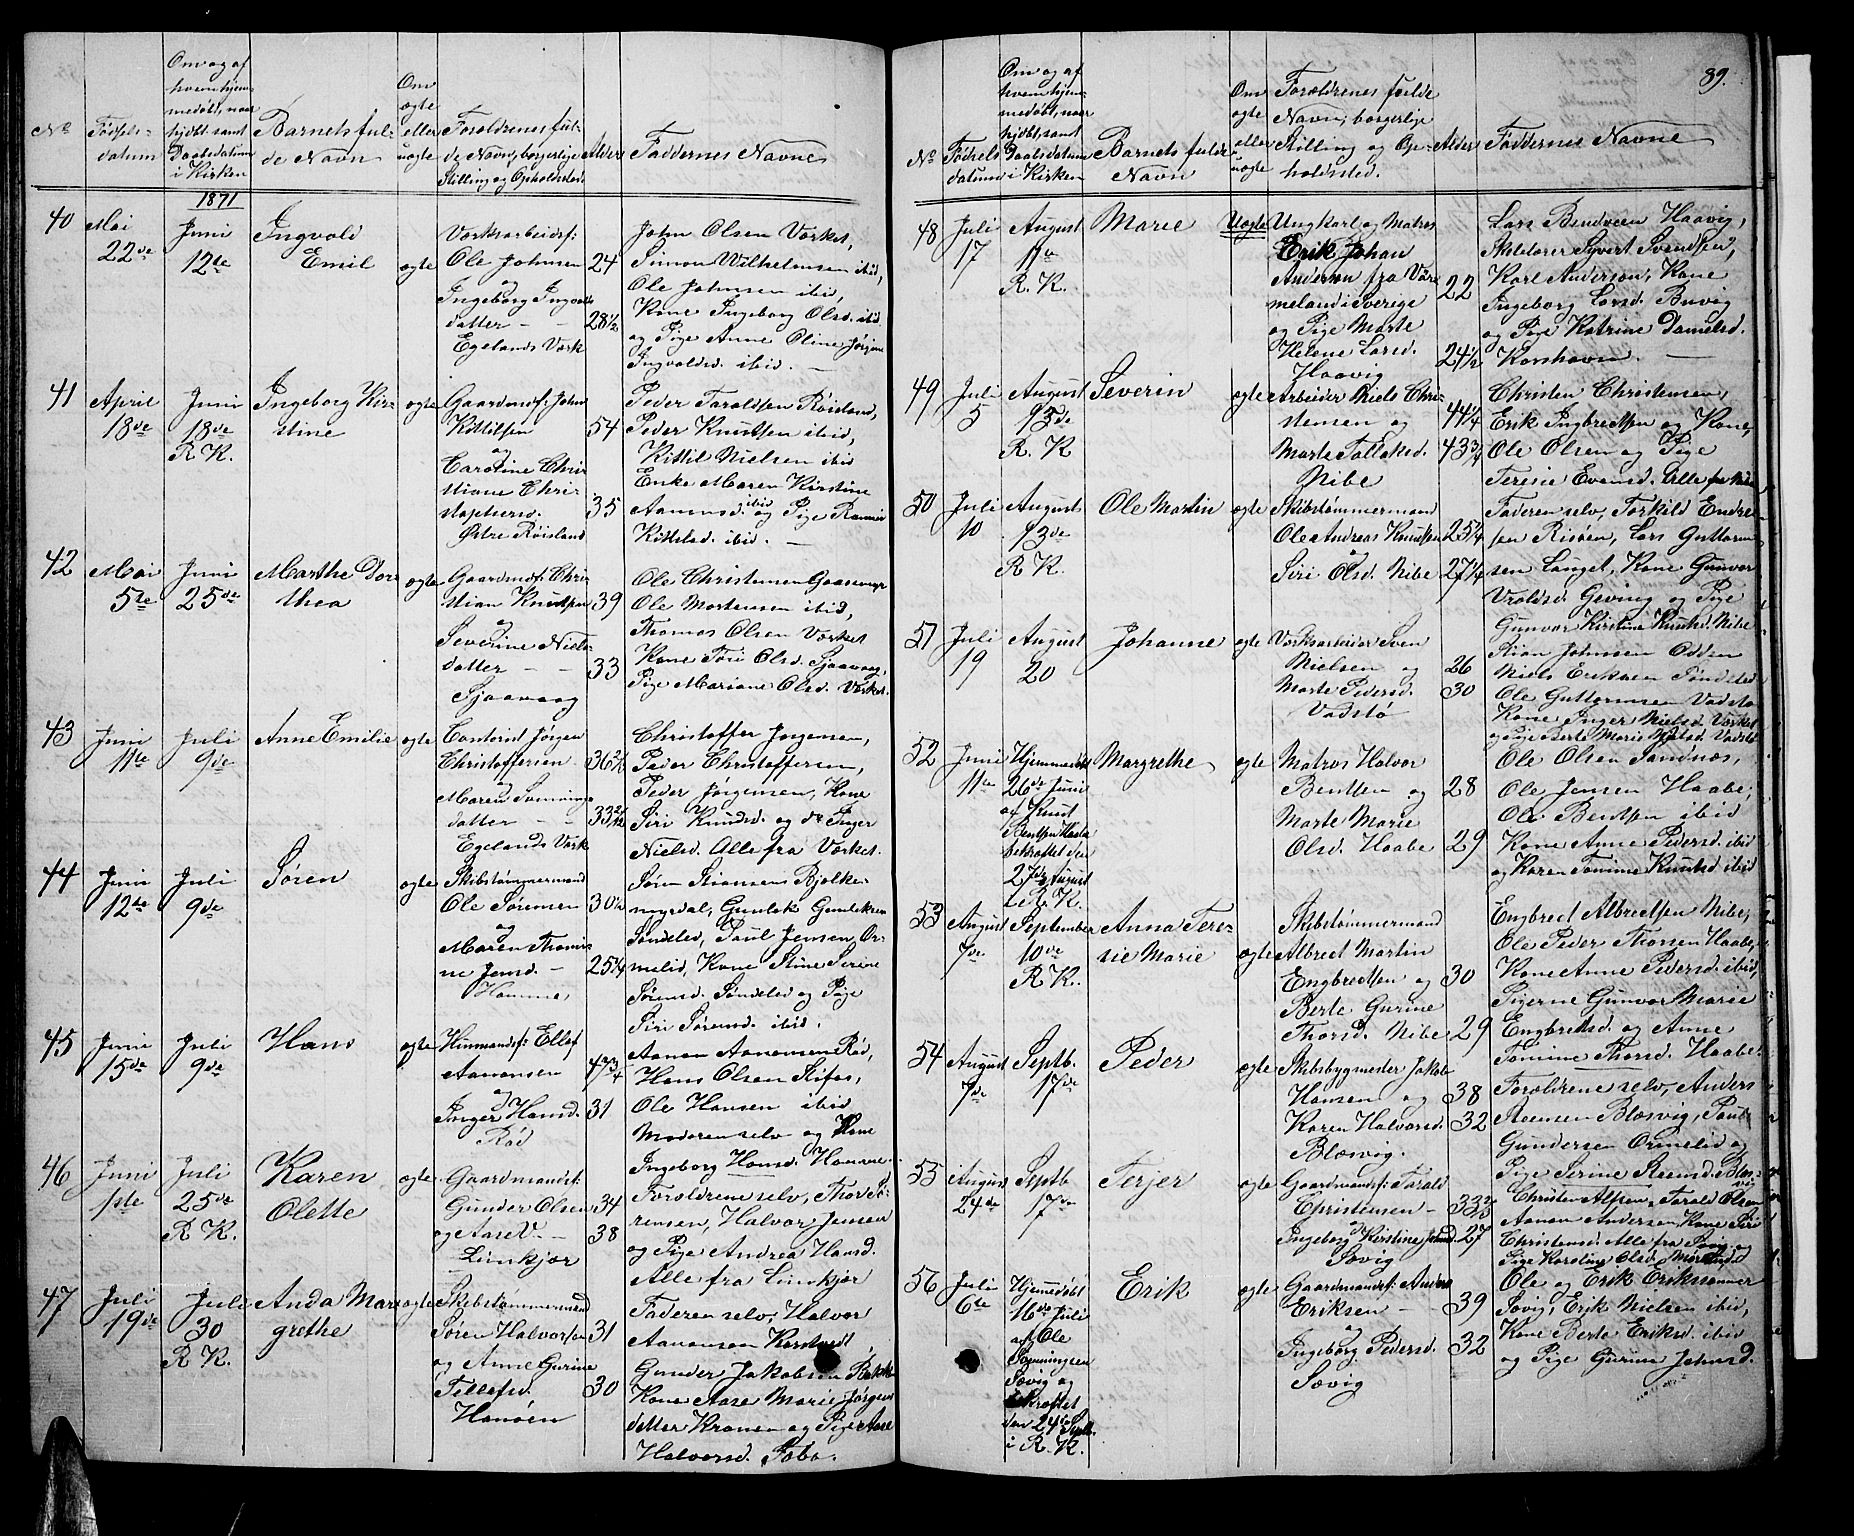 No
Fødsels-
datum
Om og af
hvem hjem-
medøbt, naar
hjdbt. samt
Daabsdatum
i Kirken
Barnets ful-
de Navn
Om
ægte
eller
uægte
Forældrenes ful-
de Navn, borgerlige
Stilling og Opholdsted.
Alder
Faddernes Navne
1871
40
Mai
22de
Juni
12te
Ingvald
Emil
ægte
Værksarbeidsf:
Ole Johnsen
og
Ingeborg Ingvalds
datter
Egelands Værk
24
28 1/2
John Olsen Værket,
Simon Wilhelmsen ibid,
Ole Johnsen ibid,
Kone Ingeborg Olsd. ibid
og Pige Anne Oline Jørgine
Ingvaldsd. ibid.
41
April
18de
Juni
18de
R K.
Ingeborg Kir-
stine
ægte
Gaardmsf: John
Kittilsen
og
Caroline Chri
stiane Chri
stophersd.
Østre Røisland
54
35
Peder Taraldsen Røisland,
Peder Knutsen ibid,
Kittil Nielsen ibid
Enke Maren Kirstine
Aanensd. ibid og Pige
Kittilsd. ibid.
42
Mai
5te
Juni
25de
Marthe Doro
thea
ægte
Gaardmsf: Chri
stian Knutsen
og
Severine Niels-
datter
Sjaavaag
39
33
Ole Christensen
Ole Mortensen ibid,
Thomas Olsen Værket
Kone Tori Olsd. Sjaavaag,
Pige Mariane Olsd. Værket.
43
Juni
11te
Juli
9de
Anne Emilie
ægte
Contorist Jørgen
Christoffersen
og
Maren Sonnings
datter
Egelands Værk
Christoffer Jørgensen,
Peder Christoffersen,
Peder Jørgensen, Kone
Siri Knudsd. og do Inger
Nielsd. Alle fra Værket.
44
Juni
12te
Juli
9de
Søren
ægte
Skibstømmermand
Ole Sørensen
og
Maren Thomi-
ne Jensd.
Hamme,
30 1/4
25 1/4
Søren Stiansen Bjelke
myrdal, Gunlek Gunleksen
Søndeled, Paul Jensen Or-
melid, Kone Stine Serine
Sørensd. Søndeled og Pige
Siri Sørensd. ibid.
45
Juni
15de
Juli
9de
Hans
ægte
Huusmandsf: Ellef
Aanonsen
og
Inger Hansd.
Rød
47 3/4
31
Aanon Aanonsen Rød,
Hans Olsen
Ole Hansen ibid
Moderen selv og Kone
Ingeborg Hansd. Hamme.
46
Juni
1ste
Juli
25de
R K.
Karen
Olette
ægte
Gaardmandsf:
Gunder Olsen
og Aase
Limkjær
34
38
Forældrene selv, Thor Sø-
rensen, Halvor Jensen
og Pige Andrea Hansd.
Alle fra Limkjær
47
Juli
19de
Juli
30
R K.
Anda Mar
grethe
ægte
Skibstømmermand
Søren Halvorsen
og Anne Gurine
Tellefsd.
Hanøen
31
30
Faderen selv, Halvor
Aanonsen
Gunder Jakobsen
Kone Aase Marie Jørgens
datter Kranen og Pige Aase
Halvorsd.
89.
No
Fødsels
datum
Om og af
hvem hjem-
medøbt, naar
hjdbt, samt
Daabsdatum
i Kirken
Barnets fulde
Navn
Om
ægte
eller
uægte
Forældrenes fulde
Navn, borgerlige
Stilling og Op-
holdsted.
Alder
Faddernes Navne
48
Juli
17
August
11te
R. K.
Marie
Uægte
Ungkarl og Matros
Erik Johan
Anderson fra Vär-
meland i Sverige
og Pige Marte
Helene Larsd.
Haavig
22
24 1/2
Lars Bentveen Haavig,
Skibfører Syvert Svendsen,
Karl Anderson, Kone
Ingeborg Larsd. Buvig
og Pige Katrine Danielsd.
Korshavn.
49
Juli
5
August
13de
R. K
Severin
ægte
Arbeider Niels Chri-
stensen og
Marte Tallaksd.
Nibe
44 1/4
43 3/4
Christen Christensen,
Erik Ingbretsen og Kone,
Ole Olsen og Pige
Teresie Evensd. Alle fra Nibe
50
Juli
10
August
13de
R K.
Ole Martin
ægte
Skibstømmermand
Ole Andreas Knutsen
og
Siri Olsd. Nibe
25 1/4
27 1/4
Faderen selv, Torkild Endre
sen Risøen, Lars Guttorm
sen Langet, Kone Gunvor
Vraldsd. Geving og Pige
Gunvor Kirstine Knutsd. Nibe
51
Juli
19
August
20
Johanne
ægte
Værksarbeider Sven
Nielsen og
Marte Pedersd.
Vadstø
26
30
Stian Johnsen Odden
Niels Eriksen Søndeled
Ole Guttormsen Vadstø
Kone Inger Nielsd. Værket
og Pige Berte Marie Nielsd. Vadstø
52
Juni
11te
Hjemmedøbt
26de Juni
af Knud
Bentsen Haabe
bekræftet den
27de August
i R. K.
Margrethe
ægte
Matros Halvor
Bentsen og
Marte Marie
Olsd. Haabe
28
29
Ole Olsen Sandnæs,
Ole Jensen Haabe,
Ole Bentsen ibid
Kone Anne Pedersd. ibid
og Karen Tomine Knutsd. ibid
53
August
7de
September
10de
R K.
Anna Tere-
sie Marie
ægte
Skibstømmermand
Albret Martin
Engbretsen
Berte Gurine
Thorsd. Nibe
30
29
Engbret Albretsen Nibe,
Ole Peder Thorsen Haabe,
Kone Anne Pedersd. ibid,
Pigerne Gunvor Marie
Engbretsd. og Anne
Tomine Thorsd. Haabe
54
August
7de
Septb.
17de
Peder
ægte
Skibsbygmester Jakob
Hansen og
Karen Halvorsd.
Blæsvig.
38
32
Forældrene selv, Anders
Blæsvig, Paul
Gundersen Ormelid og
Pige Serine
55
August
24de
Septb
17de
Terjer
ægte
Gaardmandsf: Tarald
Christensen
og
Ingeborg Kirstine
Søvig
27
Christen Alfsen, Tarald Olsen
Aanon Andersen, Kone Siri
Christensd. Alle fra Søvig og
Pige Karoline Olsd.
56
Juli
6te
Hjemmedøbt
16de Juli
af Ole
Sonningsen
Søvig og
bekræftet
den 24de Septb.
i R. K.
Erik
ægte
Gaardmandsf: Anders
Eriksen
og
Ingeborg Pedersd.
Søvig
39
32
Ole og Erik Erikssønner
Søvig, Erik Nielsen ibid,
Kone Berte Eriksd. ibid
og Pige Gurine Johnsd.